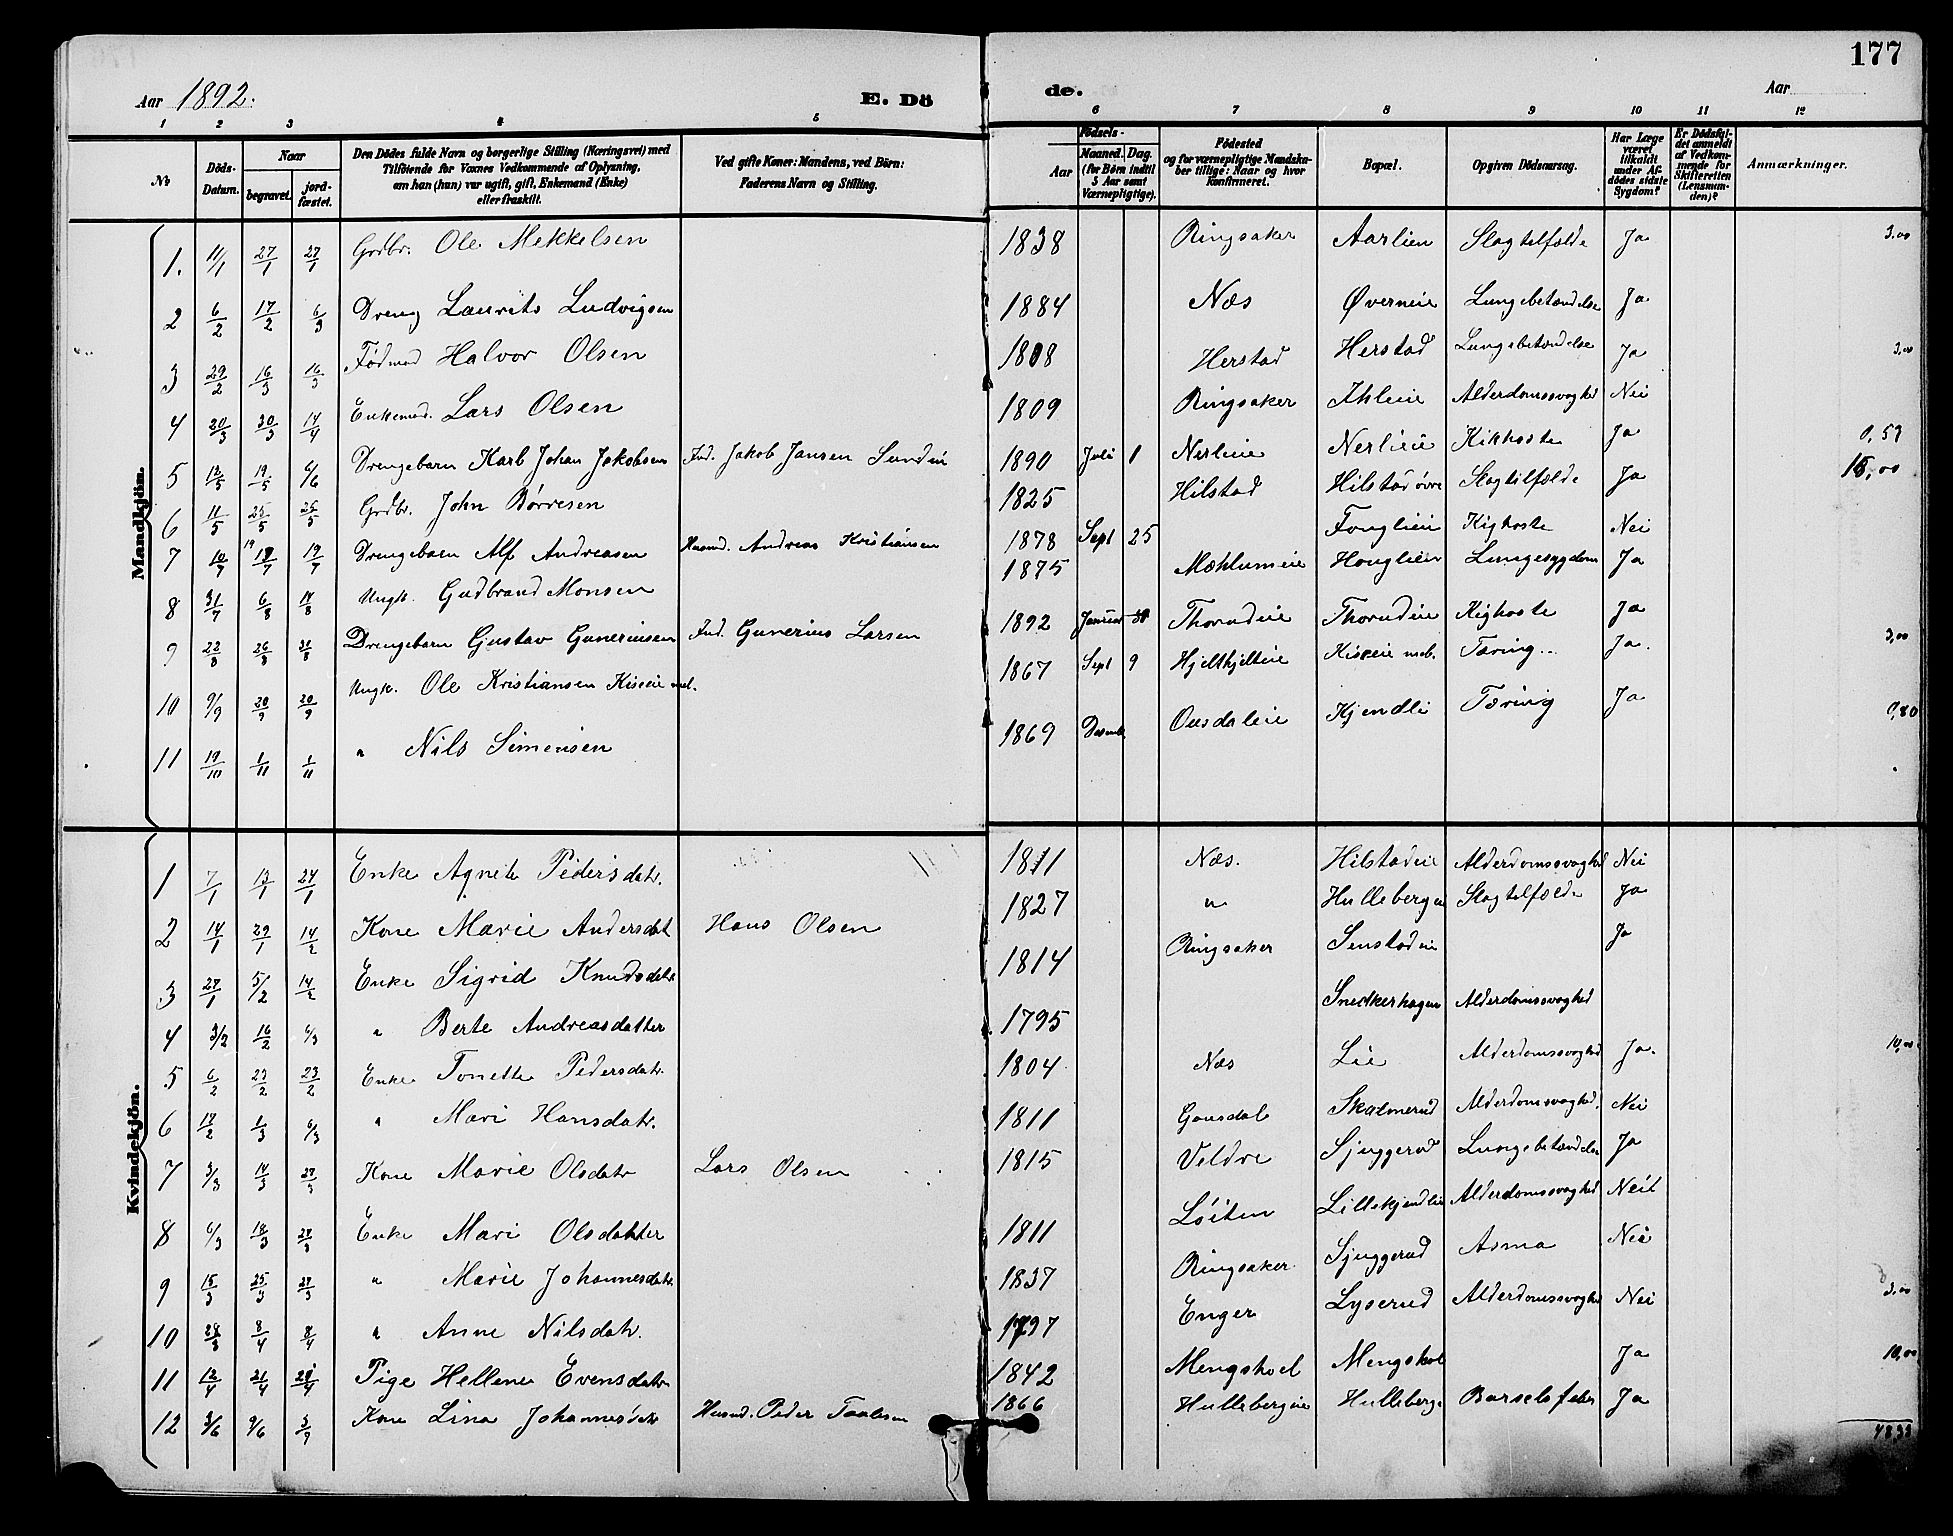 177
Aar 1892. E. Dö de. Aar
1 2 3 4 5 6 7 8 9 10 11 12
№
Döds-Datum.
Naar
begravet.
jord-fæstet.
Den Dödes fulde Navn og borgerlige Stilling (Næringsvei) med
Tilföiende for Voxnes Vedkommende af Oplysning,
om han (hun) var ugift, gift, Enkemand (Enke)
eller fraskilt.
Ved gifte Koner: Mandens, ved Börn:
Faderens Navn og Stilling.
Födsels-
Aar
Maaned. Dag.
(for Börn indtil
5 Aar samt
Værnepligtige).
Födested
og for værnepligtige Mandska-
ber tillige: Naar og hvor
konfirmeret.
Bopæl.
Opgiven Dödsaarsag.
Har Læge
været
tilkaldt
under Af-
dödes sidste
Sygdom?
Er Dödsfal-
det anmeldt
af Vedkom-
mende for
Skifteretten
(Lensman-
den)?
Anmærkninger.
Mandkjön.
1. 11/1 27/1 27/1 Grdbr. Ole Mekkelsen 1838 Ringsaker Aarlien Slagtilfælde Ja 3,00
2 6/2 17/2 6/3 Dreng Laurits Ludvigsen 1884 Næs Øverneie Lungebetændelse Ja
3 29/2 16/3 16/3 Födmd Halvor Olsen 1808 Herstad Herstad Lungebetændelse Ja 3,00
4 20/3 30/3 14/4 Enkemd. Lars Olsen 1809 Ringsaker Ihleie Alderdomssvaghed Nei
5 12/5 19/5 6/6 Drengebarn Karl Johan Jakobsen Ind. Jakob Jansen 1890 Juli 1 Nerlieie Nerlieie Kikhoste Ja
6 11/5 25/5 25/5 Grdbr. John Börresen 1825 Hilstad Hilstad övre Slagtilfælde Ja 15,00
7 10/7 19/7 19/7 Drengebarn Alf Andreasen Husmd. Andreas Kristiansen 1878 Sept 25 Fonglieie Kighoste Nei
8 31/7 6/8 14/8 Ungk. Gudbrand Monsen 1875 Mæhlumeie Honglieie Lungesygdom Ja
9 22/8 26/8 Drengebarn Gustav Guneriusen Ind. Gunerius Larsen 1892 Thorudeie Thorudeie Kighoste Ja
10 9/9 20/9 20/9 Ungk. Ole Kristiansen Kiseeie 1867 Sept 9 Kiseeie Tæring Ja. 3,00
11 19/10 1/11 1/11 " Nils Simensen 1869 Kjendli Tæring Ja 0,80
Kvindekjön.
1 7/1 13/1 24/1 Enke Agnete Pedersdatr. 1811 Næs. Hilstadeie Alderdomssvaghed Nei
2 14/1 29/1 14/2 Kone Marie Andersdat Hans Olsen 1827 " Hullebergeie Slagtilfælde Ja
3 27/1 5/2 14/2 Enke Sigrid Knudsdatr 1814 Ringsaker Senstadeie Ja
4 3/2 16/2 6/3 " Berte Andreasdatter 1795 Snedkerhagen Alderdomssvaghed
5 6/2 23/2 23/2 Enke Tonette Pedersdatr. 1804 Næs Lie Alderdomssvaghed Ja. 10,00
6 1/3 6/3 " Mari Hansdatr. 1811 Gausdal Skalmerud Alderdomssvaghed. Nei
7 3/3 14/3 Kone Marie Olsdatr Lars Olsen 1815 Veldre Sjuggerud Lungebetændelse Ja
8 6/3 18/3 Enke Mari Olsdatter 1811 Löiten Lillekjendlie Alderdomssvaghed Neit
9 15/3 25/3 " Marie Johannesdatr. 1837 Ringsaker Sjuggerud Asma Nei
10 28/3 8/4 8/4 " Anne Nilsdatr. 1797 Enger Lyserud Alderdomssvaghed Nei 3,00
11 12/4 21/4 21/4 Pige Hellene Evensdatr 1842 Mengshoel Mengshoel Ja 10,00
12 3/6 9/6 3/9 Kone Lina Johannesdtr Husmd. Peder Taalesen 1866 Hullebergeie Hulleberge Barselsfeber Ja